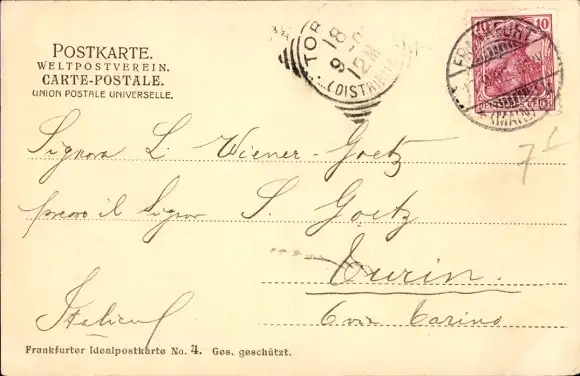 POSTKARTE.
WELTPOSTVEREIN.
CARTE-POSTALE.
UNION POSTALE UNIVERSELLE.
TOR
18
9
12M
(DISTRIBUZ
10 10
FRANKFURT
(MAIN)
7
Signora L. Wiener-Goetz
presso il Signor S. Goetz
Turin.
Italien
Frankfurter Idealpostkarte No. 4. Ges. geschützt.